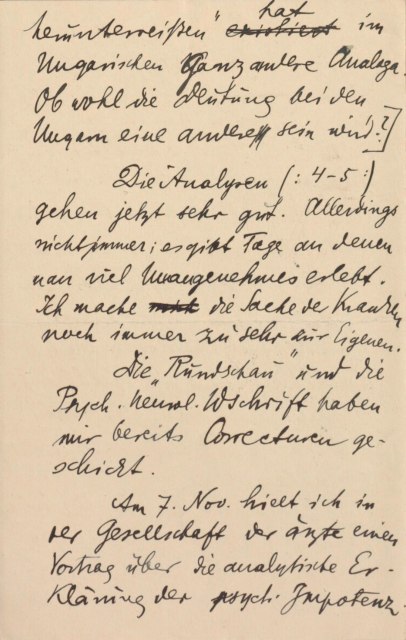 herunterreißen" hat existiert im
Ungarischen Ganz andere Analoga.
Ob wohl die Deutung bei den
Ungarn eine andere sein wird?]
Die Analysen (: 4–5 :)
gehen jetzt sehr gut. Allerdings
nicht immer; es gibt Tage an denen
man viel Unangenehmes erlebt.
Ich mache die Sache der Kranken
noch immer zu sehr zur Eigenen.
Die „Rundschau" und die
Psych. neurol. Wschrift haben
mir bereits Correcturen ge-
schickt.
Am 7. Nov. hielt ich in
der Gesellschaft der Ärzte einen
Vortrag über die analytische Er-
klärung der psych. Impotenz.